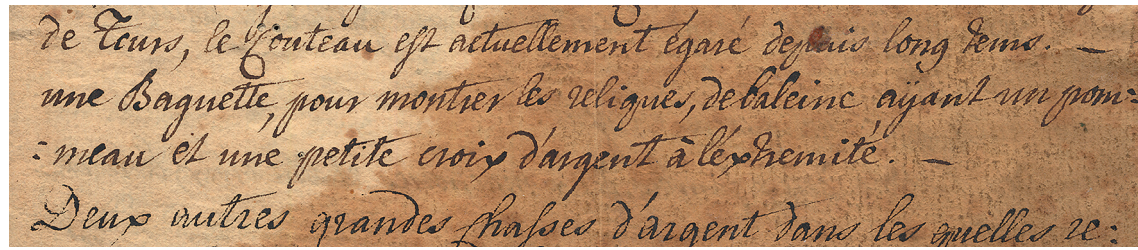 de Tours, le Couteau est actuellement egaré depuis long tems. —
une Baguette, pour montrer les reliques, de baleine aÿant un pom=
=meau et une petite croix d'argent à l'éxtremité. —
Deux autres grandes chasses d'argent dans les quelles re=